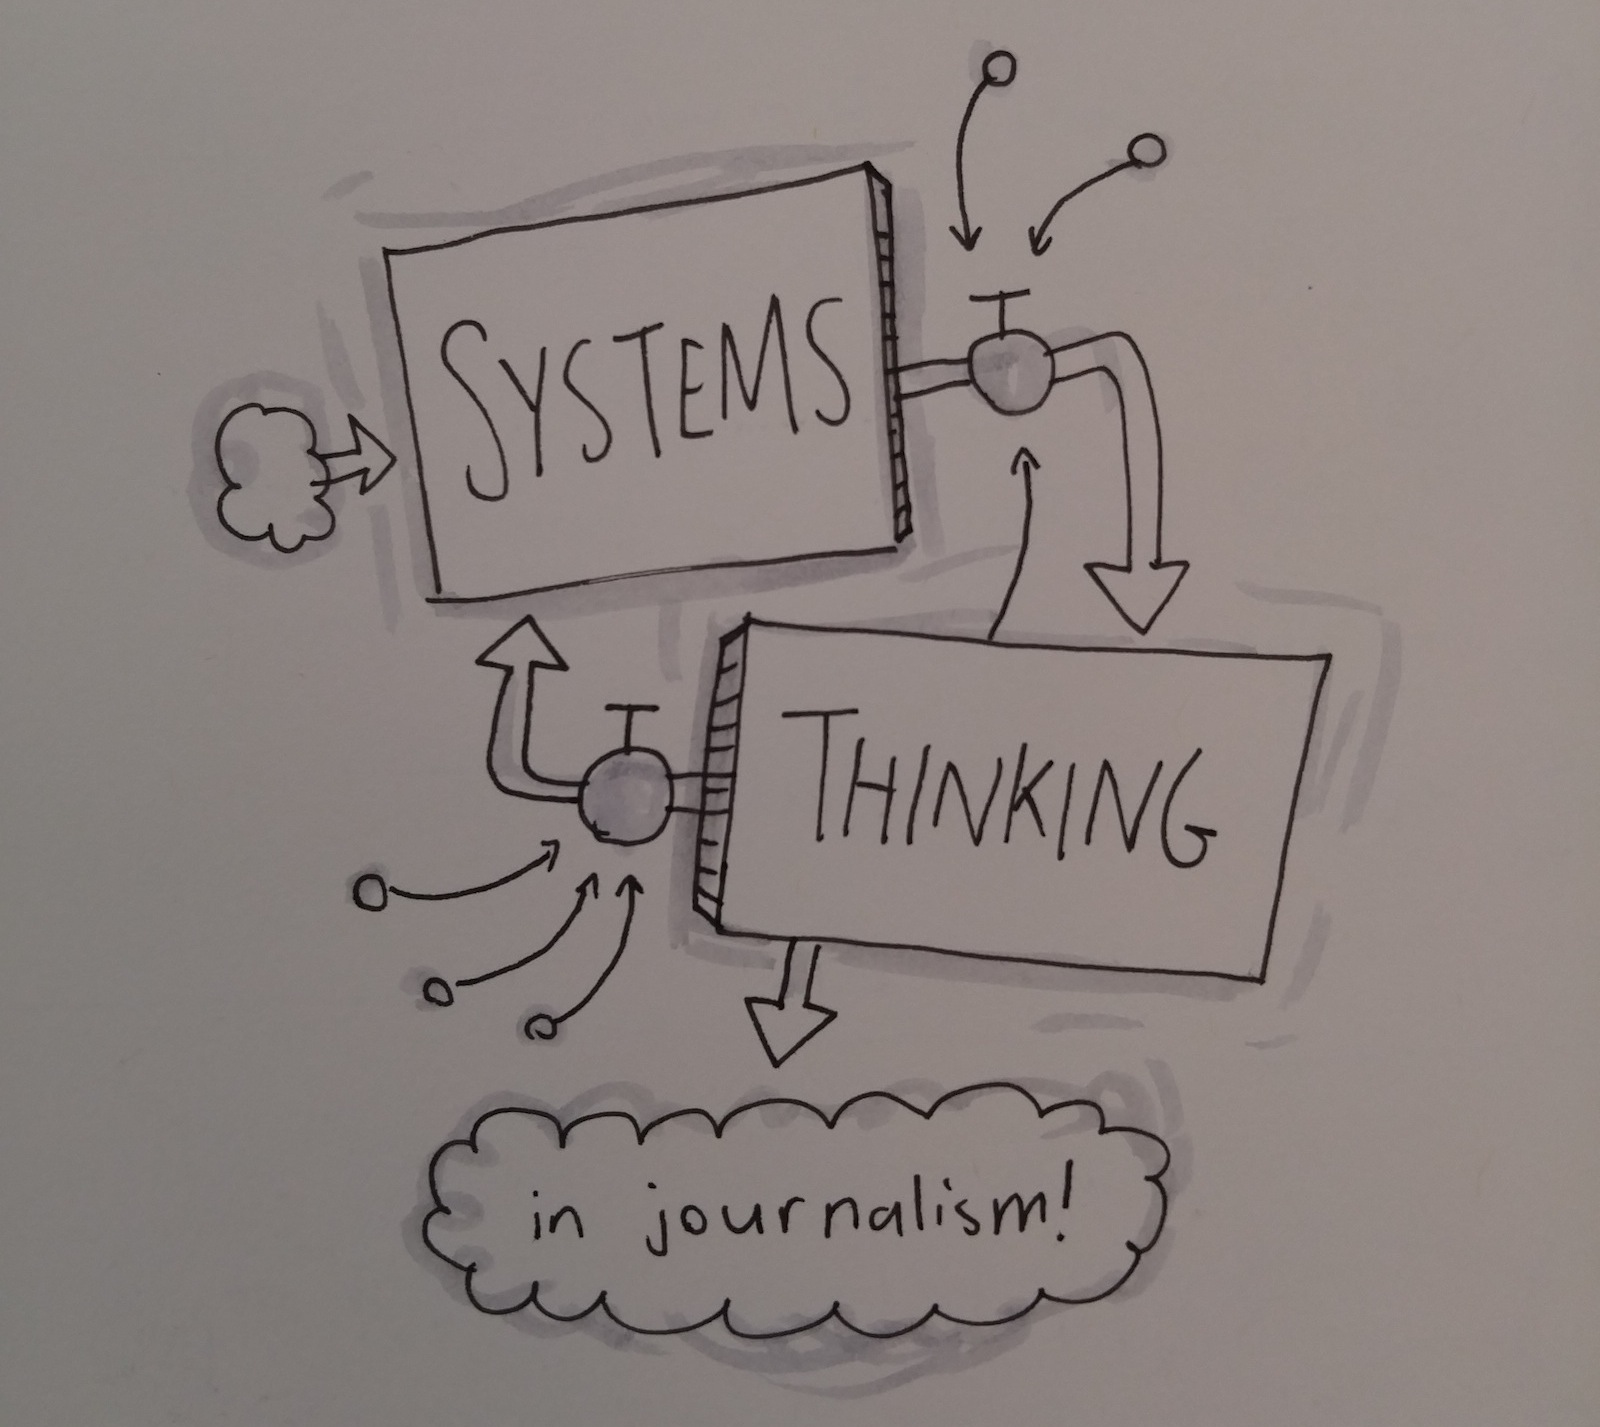 SYSTEMS
THINKING
in journalism!